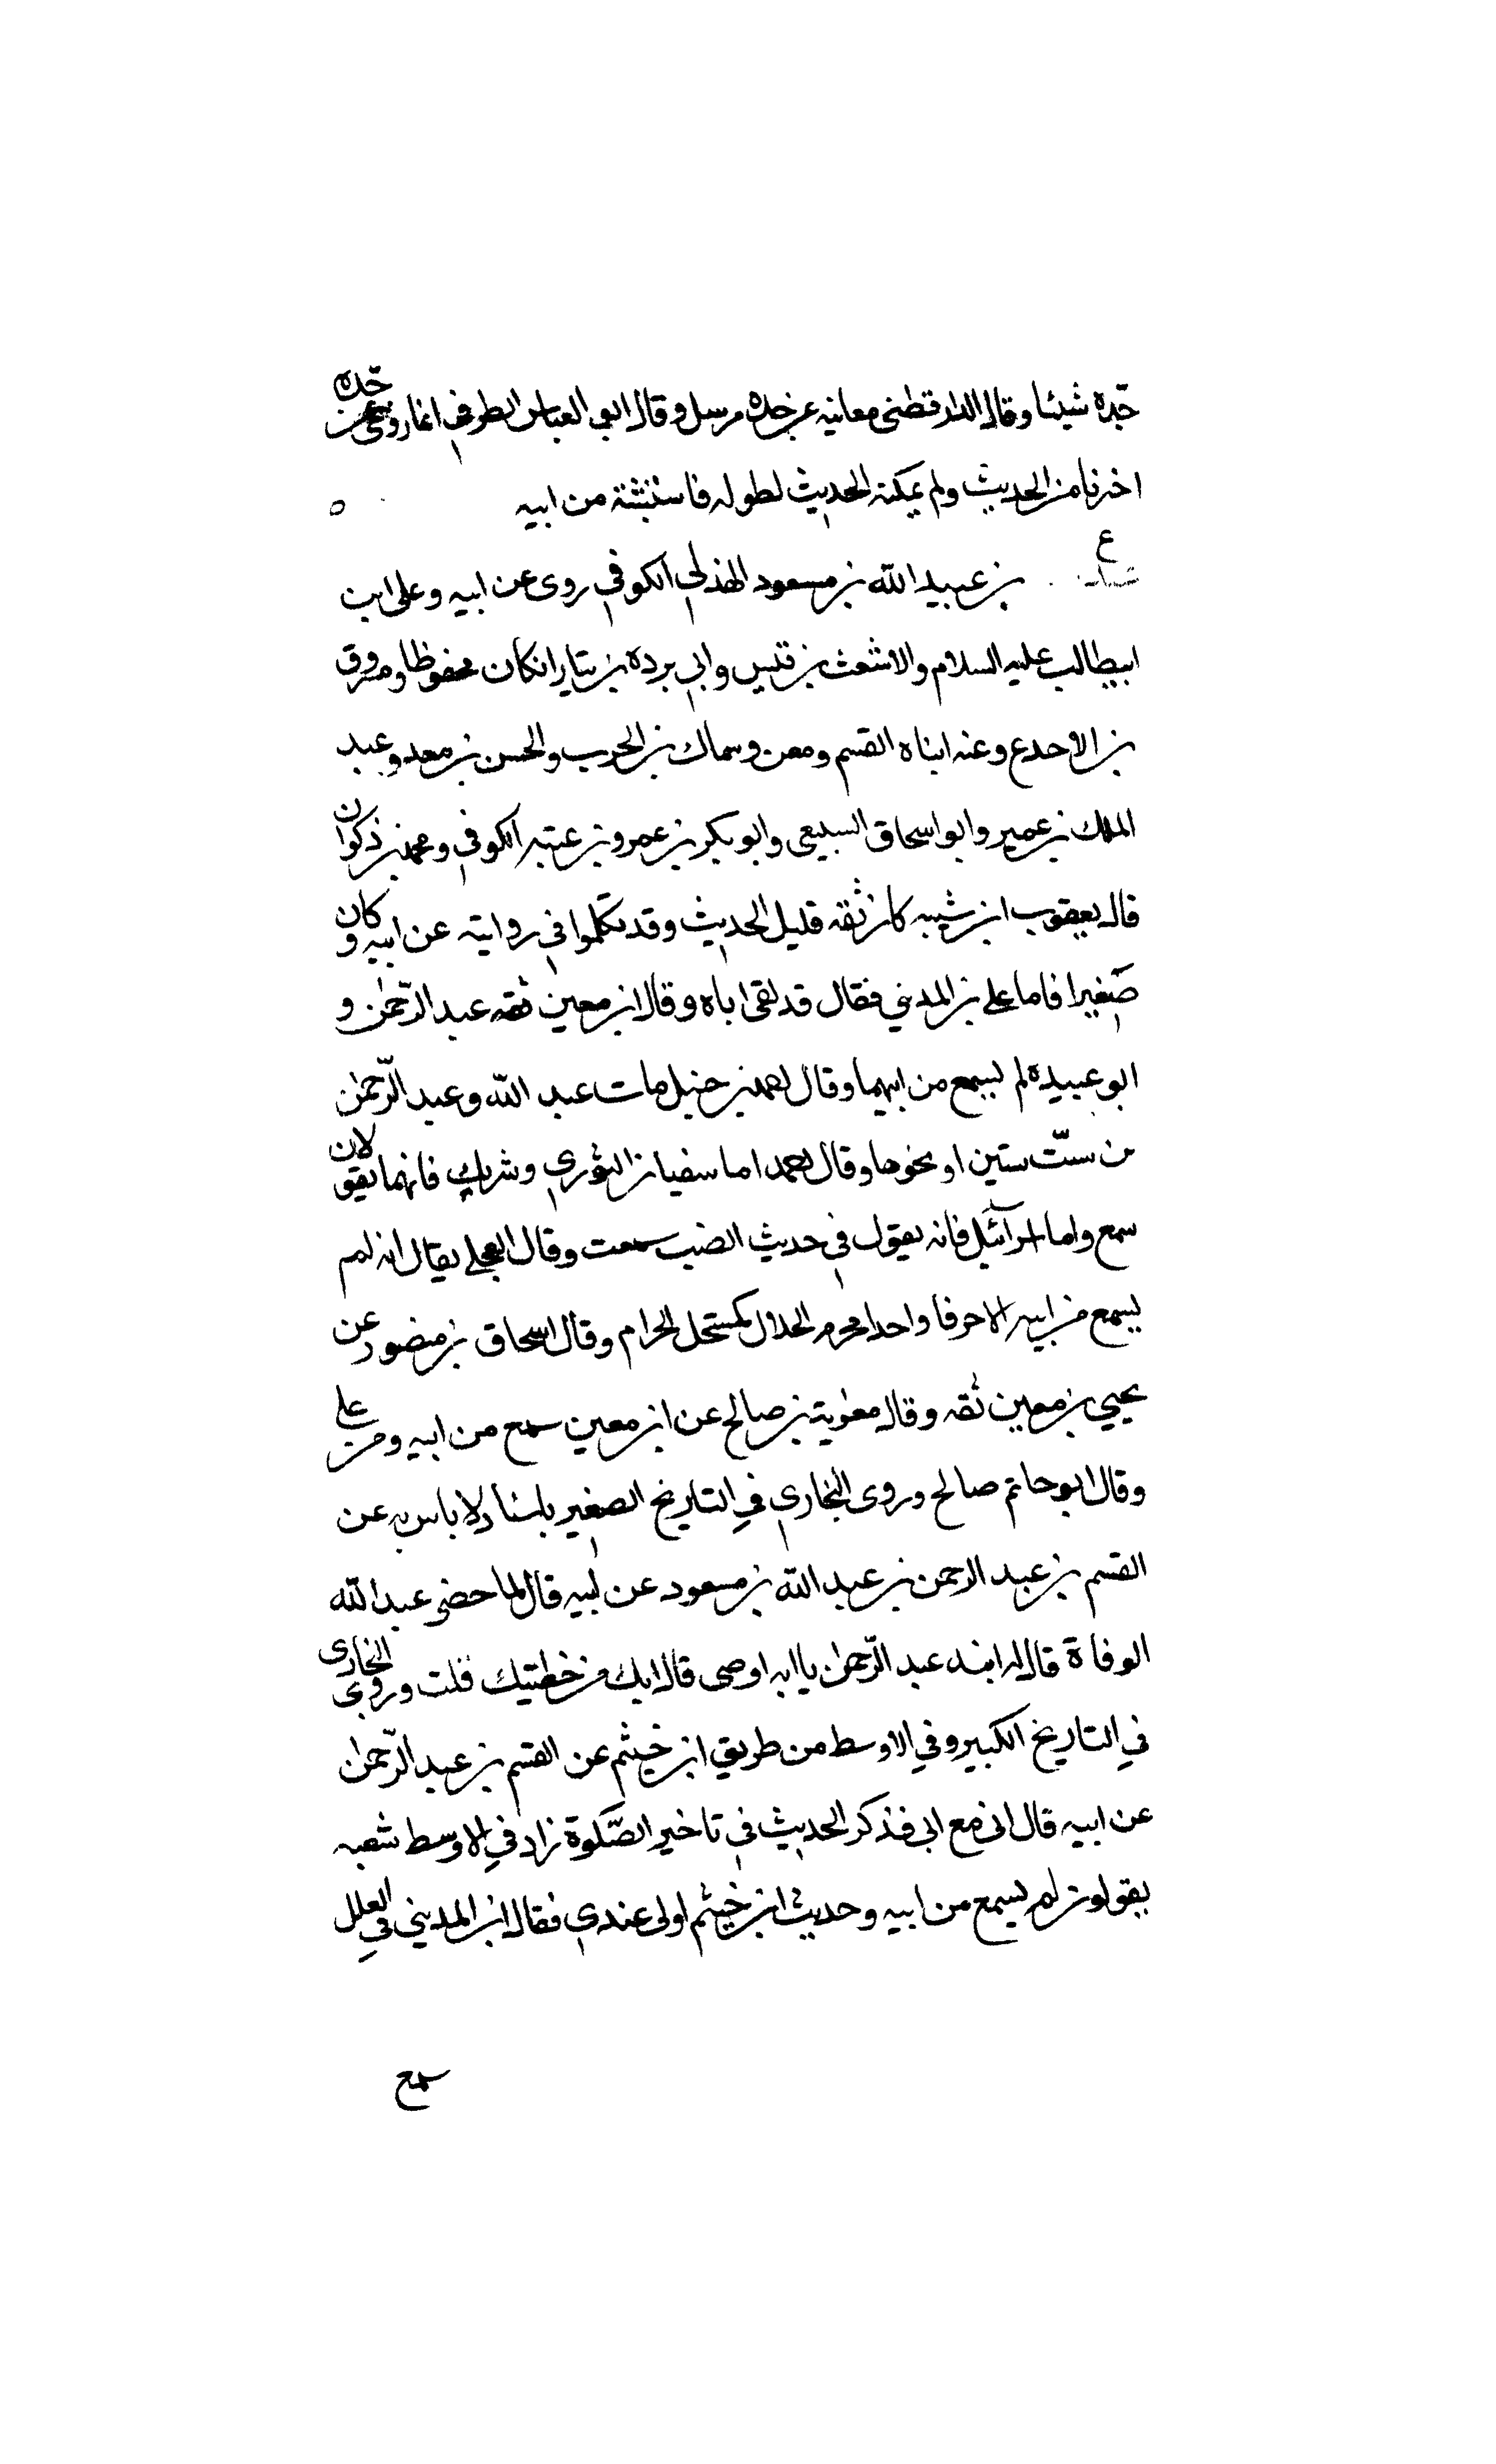 جده شيئا وقال الدارقطنى معانيه عن جده مرسل وقال ابو العباس الطرفى انما روى عن جده
احرفا من الحديث ولم يمكنه الحديث لطوله فاستثبته من ابيه ٥
ع
بن عبيد الله بن مسعود الهذلى الكوفى روى عن ابيه وعلى ابن
ابيطالب عليه السلام والاشعث بن قيس وابى برده بن نيار انكان محفوظا ومسروق
بن الاجدع وعنه ابناه القسم ومعن وسماك بن الحرب والحسن بن معد وعبد
الملك بن عمير وابو اسحاق السبيعى وابو بكر بن عمرو بن عتبه الكوفى ومحمد بن ذكوان
قال يعقوب ابن شيبه كان ثقه قليل الحديث وقد تكلموا فى روايته عن ابيه وكان
صغيرا فاما على بن المدينى فقال قد لقى اباه وقال ابن معين ثقه عبد الرحمن و
ابو عبيده لم يسمع من ابيهما وقال احمد بن حنبل مات عبد الله وعبد الرحمن
بن ست ستين او نحوها وقال احمد اما سفيان الثورى وشريك فانهما يقولان
سمع واما اسرآئيل فانه يقول فى حديث الضب سمعت وقال العجلى يقال انه لم
يسمع من ابيه الا حرفا واحدا محرم الحلال كمستحل الحرام وقال اسحاق بن منصور عن
يحيى بن معين ثقه وقال معوية بن صالح عن ابن معين سمع من ابيه ومن على
وقال ابو حاتم صالح وروى البخارى فى التاريخ الصغير باسناد لا باس به عن
القسم بن عبد الرحمن بن عبد الله بن مسعود عن ابيه قال لما حضر عبد الله
الوفاة قال له ابنه عبد الرحمن يا ابه اوصى قال ابك من خطيتك قلت وروى البخارى
في التاريخ الكبير وفي الاوسط من طريق ابن خيثم عن القسم بن عبد الرحمن
عن ابيه قال انى مع ابى فذكر الحديث فى تاخير الصلوة زاد في الاوسط شعبه
يقولون لم يسمع من ابيه وحديث ابن خيثم اولى عندى فقال ابن المدينى فى العلل
سمع